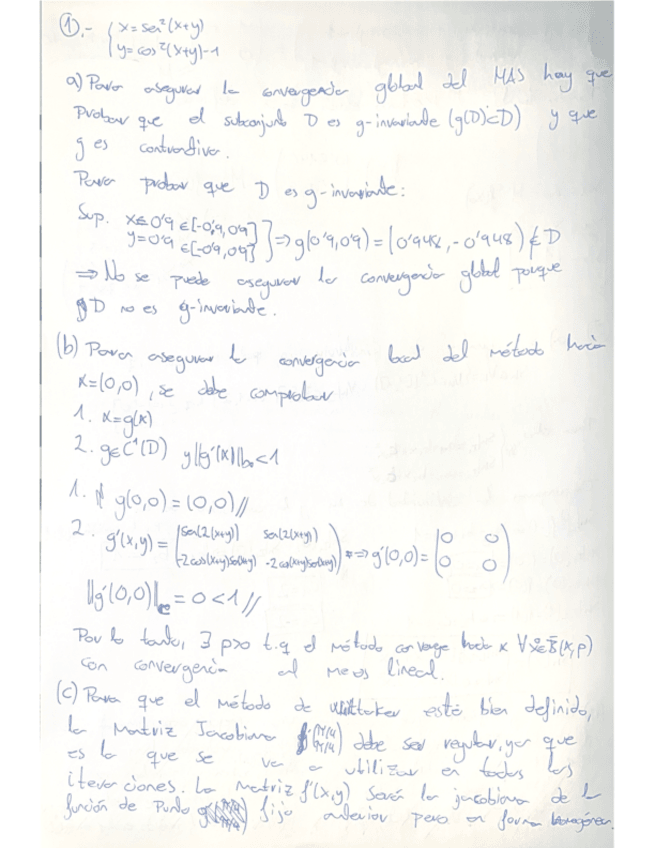 ①.- { x = sen²(x+y)
y = cos²(x+y)-1
a) Para asegurar la convergencia global del MAS hay que
Probar que el subconjunto D es g-invariante (g(D)⊂D) y que
g es contractiva.
Para probar que D es g-invariante:
Sup. x=0'9 ∈[-0'9,0'9]
y=0'9 ∈[-0'9,0'9] } ⇒ g(0'9,0'9) = (0'948, -0'948) ∉ D
⇒ No se puede asegurar la convergencia global porque
D no es g-invariante.
(b) Para asegurar la convergencia local del método hacia
x=(0,0), se debe comprobar
1. x=g(x)
2. g∈C¹(D) y ||g'(x)||∞<1
1. g(0,0) = (0,0)//
2. g'(x,y) = ( sen(2(x+y)) sen(2(x+y))
-2cos(x+y)sen(x+y) -2cos(x+y)sen(x+y) ) ⇒ g'(0,0) = ( 0 0
0 0 )
||g'(0,0)||∞ = 0 < 1 //
Por lo tanto, ∃ ρ>0 t.q el método converge hacia x ∀x⁰∈B̄(x,ρ)
con convergencia al menos lineal.
(c) Para que el método de Whittaker esté bien definido,
la Matriz Jacobiana f'(π/4 π/4) debe ser regular, ya que
es la que se va a utilizar en todas las
iteraciones. La matriz f'(x,y) será la jacobiana de la
función de Punto fijo anterior pero en forma homogénea.